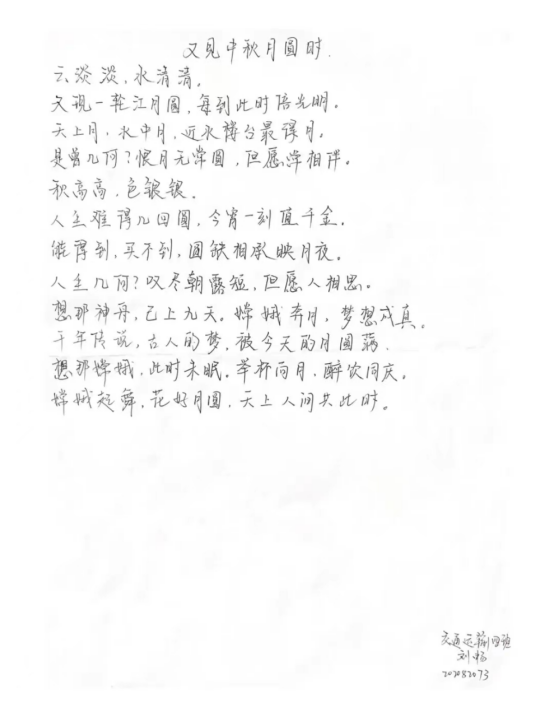 又见中秋月圆时.
云淡淡,水清清。
又现一轮江月圆,每到此时倍光明。
天上月,水中月,近水楼台最得月。
是曾几何?恨月无常圆,但愿常相伴。
秋高高,色银银.
人生难得几回圆,今宵一刻值千金。
能得到,买不到,圆缺相承映月夜。
人生几何?叹尽朝露短,但愿人相思。
想那神舟,已上九天。嫦娥奔月,梦想成真。
千年传说,古人的梦,被今天的月圆
想那嫦娥,此时未眠。举杯向月,醉饮同庆。
嫦娥起舞,花好月圆,天上人间共此时。
交通运输
刘畅
202082073